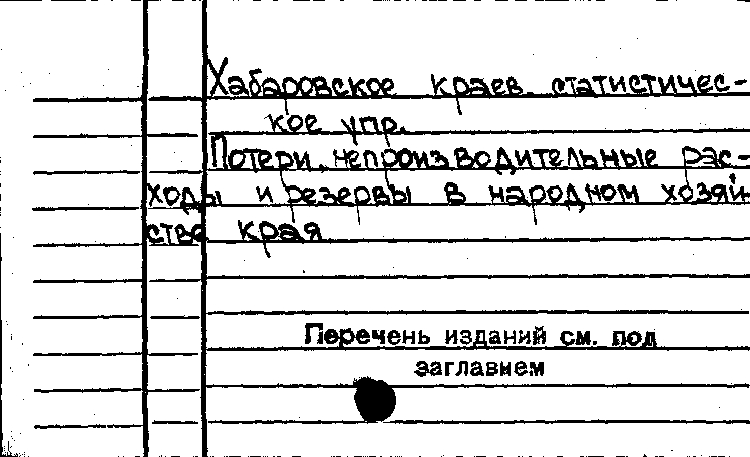 Хабаровское краев. статистичес-
кое упр.
Потери, непроизводительные рас-
ходы и резервы в народном хозяй-
стве края
Перечень изданий см. под
заглавием